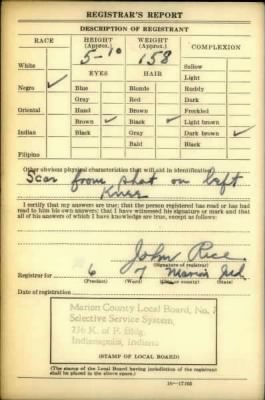 REGISTRAR'S REPORT
DESCRIPTION OF REGISTRANT
RACE HEIGHT (Approx.) WEIGHT (Approx.) COMPLEXION
5-10 158
White Sallow
EYES HAIR Light
Negro ✓ Blue Blonde Ruddy
Gray Red Dark
Oriental Hazel Brown Freckled
Brown ✓ Black ✓ Light brown
Indian Black Gray Dark brown ✓
Bald Black
Filipino
Other obvious physical characteristics that will aid in identification
Scar from shot on left
Knee
I certify that my answers are true; that the person registered has read or has had
read to him his own answers; that I have witnessed his signature or mark and that
all of his answers of which I have knowledge are true, except as follows:
John Rice
(Signature of registrar)
Registrar for 6 7 Marion Ind.
(Precinct) (Ward) (City or county) (State)
Date of registration
Marion County Local Board, No. 7
Selective Service System,
K. of P. Bldg.
Indianapolis, Indiana
(STAMP OF LOCAL BOARD)
(The stamp of the Local Board having jurisdiction of the registrant
shall be placed in the above space.)